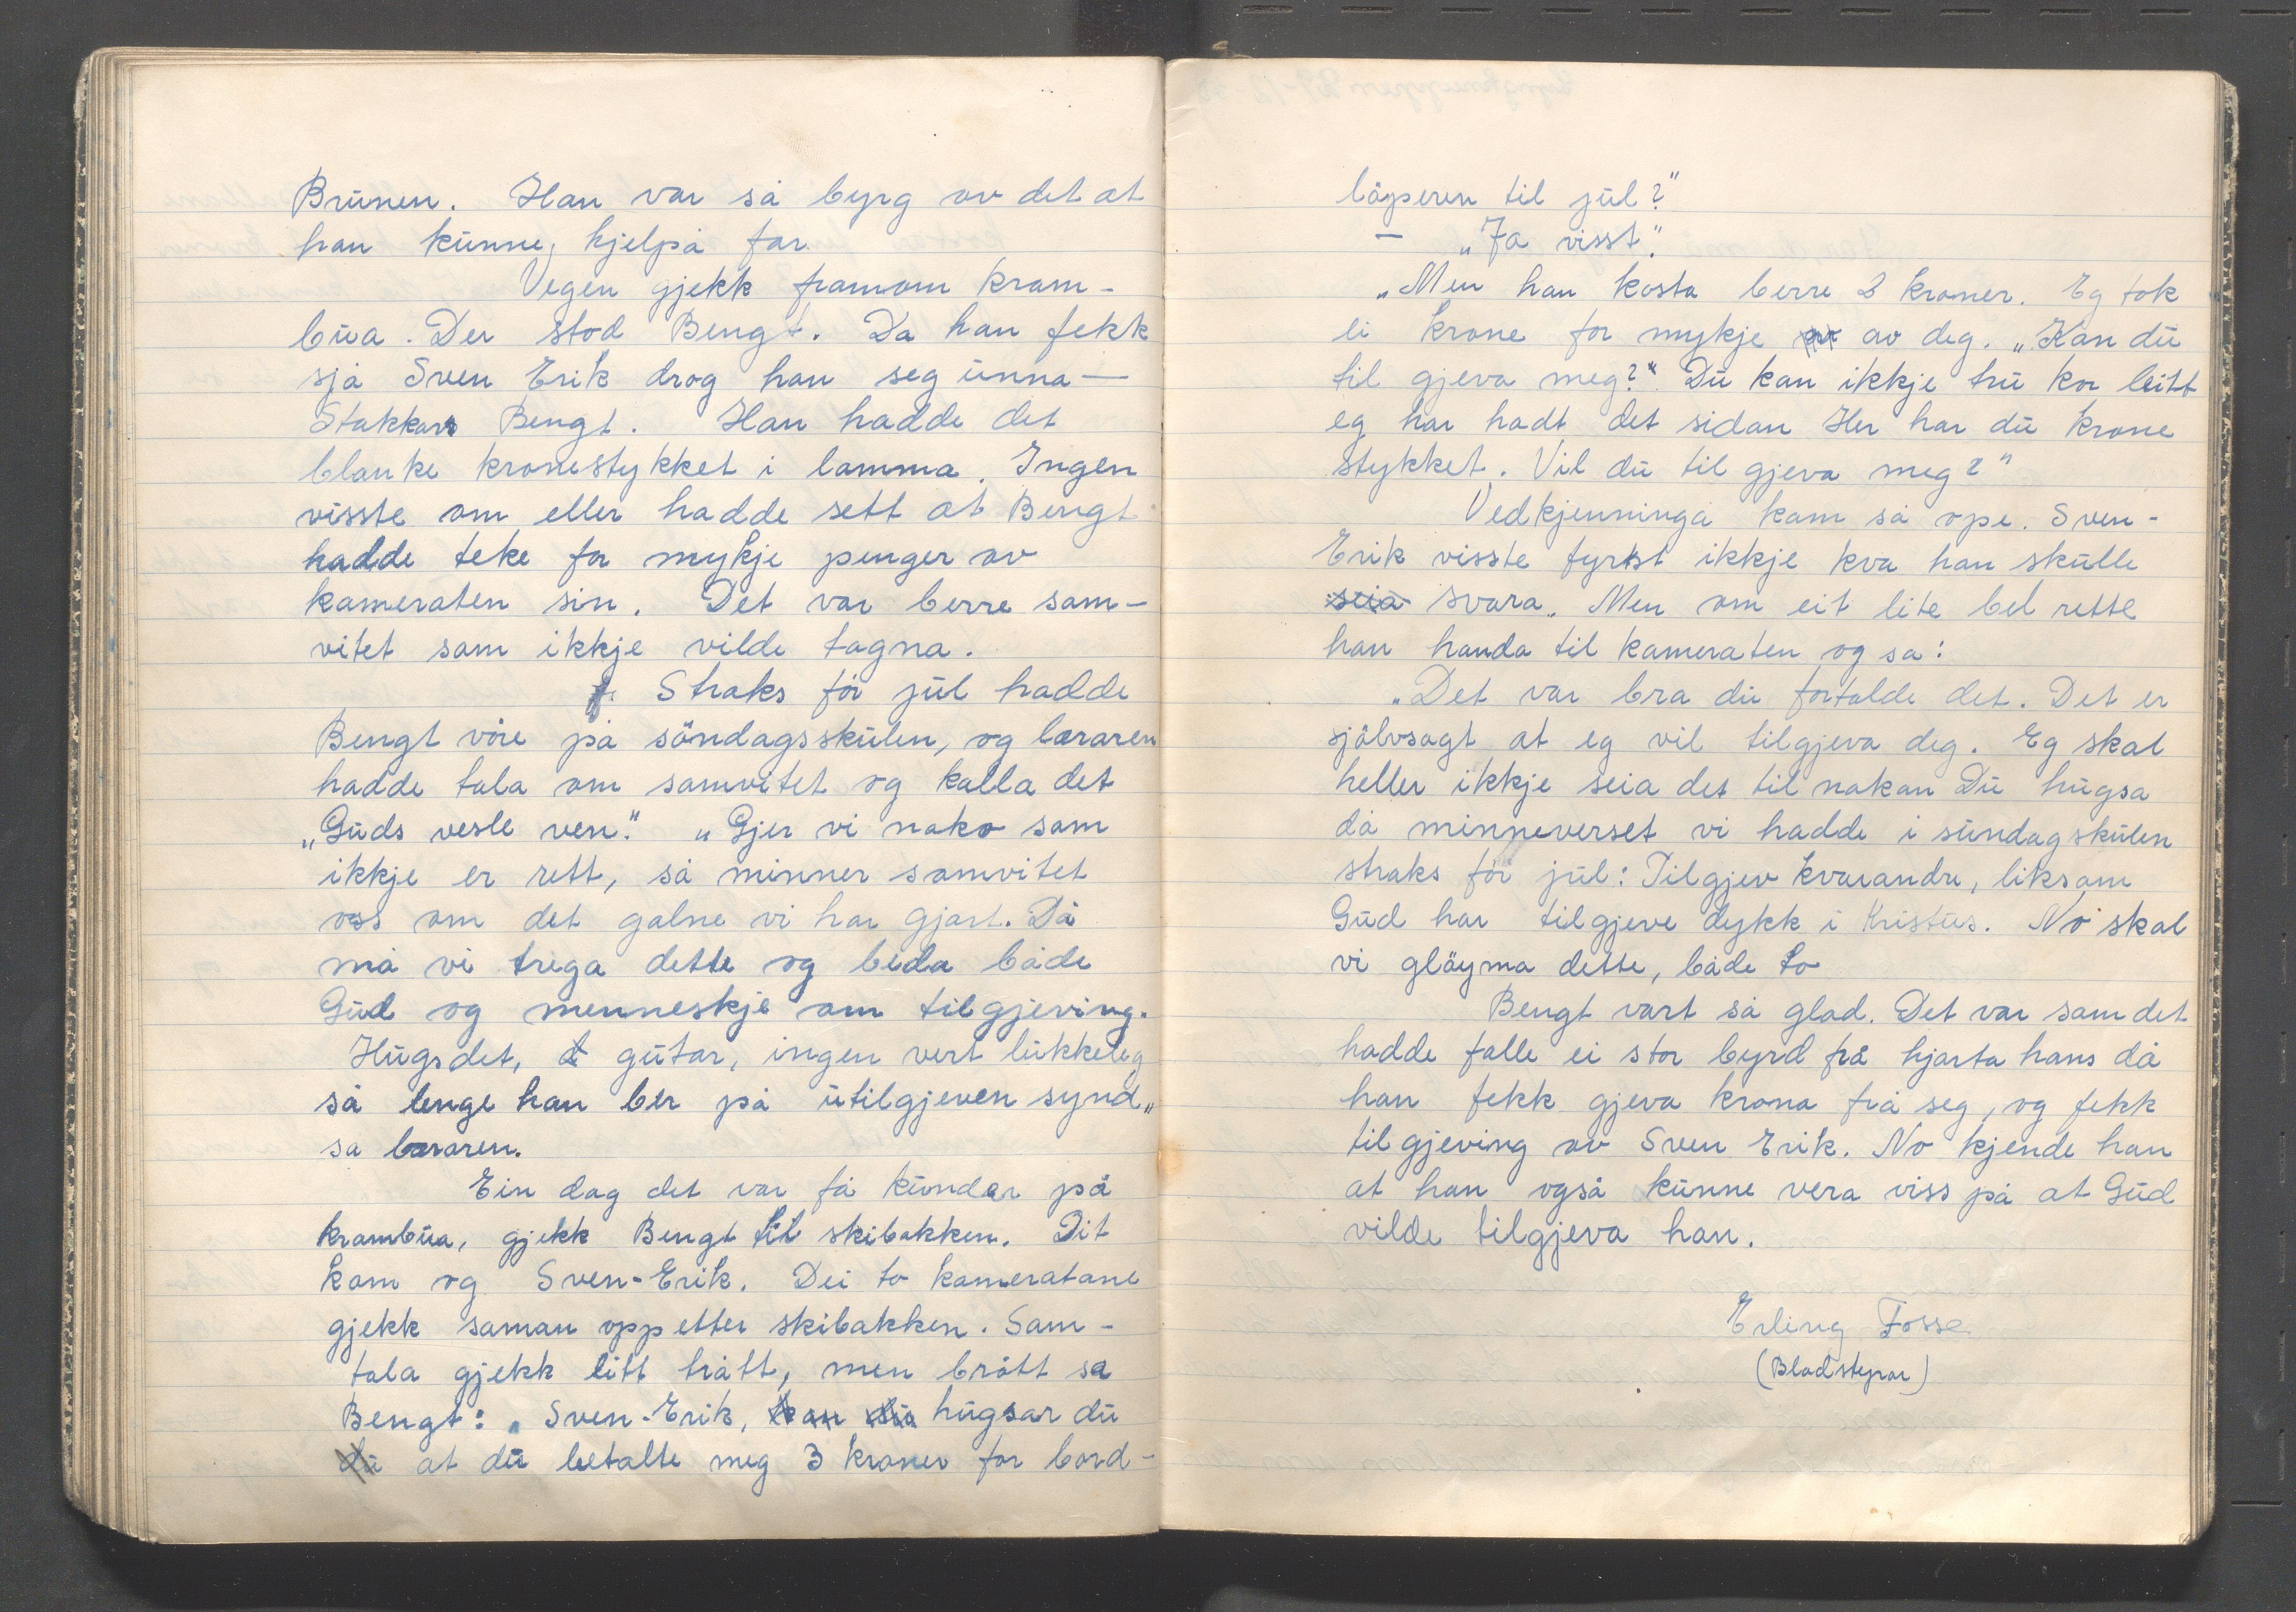 Brunen. Han var så byrg av det at
han kunne hjelpa far.
Vegen gjekk framom kram-
bua. Der stod Bengt. Da han fekk
sjå Sven Erik drog han seg unna—
Stakkars Bengt. Han hadde det
blanke kronestykket i lomma. Ingen
visste om eller hadde sett at Bengt
hadde teke for mykje penger av
kameraten sin. Det var berre sam-
vitet som ikkje vilde tagna.
Straks för jul hadde
Bengt vore på söndagsskulen, og læraren
hadde tala om samvitet og kalla det
„Guds vesle ven." „Gjer vi noko som
ikkje er rett, så minner samvitet
oss om det galne vi har gjort. Då
må vi trega dette og beda både
Gud og menneskje om tilgjeving.
Hugs det, gutar, ingen vert lukkeleg
så lenge han ber på utilgjeven synd„
sa læraren.
Ein dag det var få kundar på
krambua, gjekk Bengt til skibakken. Dit
kom og Sven-Erik. Dei to kameratane
gjekk saman opp etter skibakken. Sam-
tala gjekk litt trått, men brått sa
Bengt: „Sven-Erik, kan du hugsar du
du at du betalte meg 3 kroner for bord-
löperen til jul?"
— „Ja visst".
„Men han kosta berre 2 kroner. Eg tok
ei krone for mykje av av deg. „Kan du
til gjeva meg?" Du kan ikkje tru kor leitt
eg har hadt det sidan Her har du krone
stykket. Vil du til gjeva meg?"
Vedkjenninga kom så ope. Sven-
Erik visste fyrst ikkje kva han skulle
seia svara. Men om eit lite bel rette
han handa til kameraten og sa:
„Det var bra du fortalde det. Det er
sjölvsagt at eg vil tilgjeva deg. Eg skal
heller ikkje seia det til nokon Du hugsa
då minneverset vi hadde i sundagskulen
straks för jul: Tilgjev kvarandre, liksom
Gud har tilgjeve dykk i Kristus. No skal
vi glöyma dette, både to
Bengt vart så glad. Det var som det
hadde falle ei stor byrd frå hjarta hans då
han fekk gjeva krona frå seg, og fekk
tilgjeving av Sven Erik. No kjende han
at han også kunne vera viss på at Gud
vilde tilgjeva han.
Erling Fosse
(Bladstyrar)